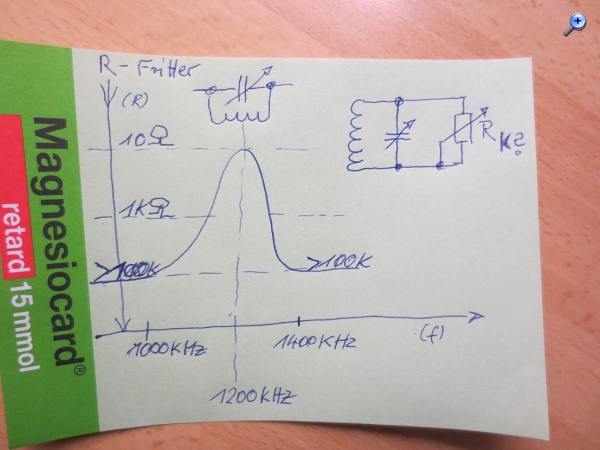 R-Fritter
(R)
10Ω
1KΩ
>100K
>100K
1000KHz
1400KHz
(f)
1200KHz
R K?
Magnesiocard®
retard 15 mmol